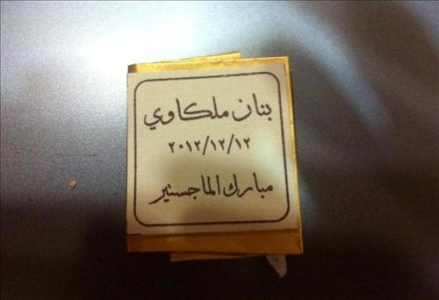 بنان ملكاوي
٢٠١٢/١٢/١٢
مبارك الماجستير